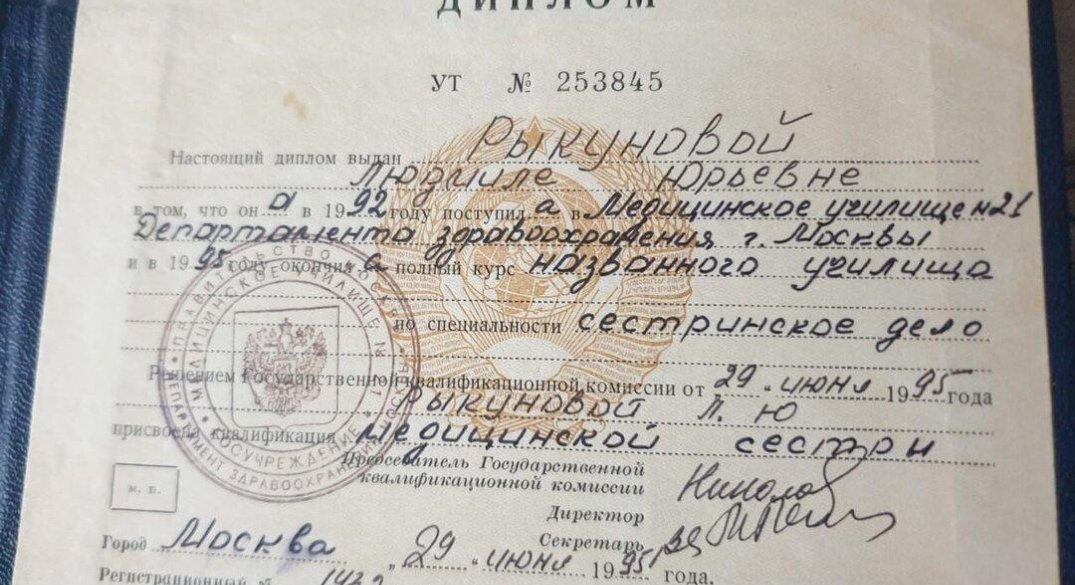 ДИПЛОМ
УТ № 253845
Настоящий диплом выдан Рыкуновой
Людмиле Юрьевне
в том, что он а в 1992 году поступил а в Медицинское училище №21
Департамента здравоохранения г. Москвы
и в 1995 году окончил а полный курс названного училища
по специальности сестринское дело
Решением Государственной квалификационной комиссии от 29 " июня 1995 года
Рыкуновой Л. Ю
присвоена квалификация медицинской сестры
Председатель Государственной
квалификационной комиссии
Директор
Секретарь
м. п.
Город Москва " 29 " июня 1995 года.
Регистрационный №
МЕДИЦИНСКОЕ УЧИЛИЩЕ №
ДЕПАРТАМЕНТ ЗДРАВООХРАНЕНИЯ
ГОСУЧРЕЖДЕНИЕ